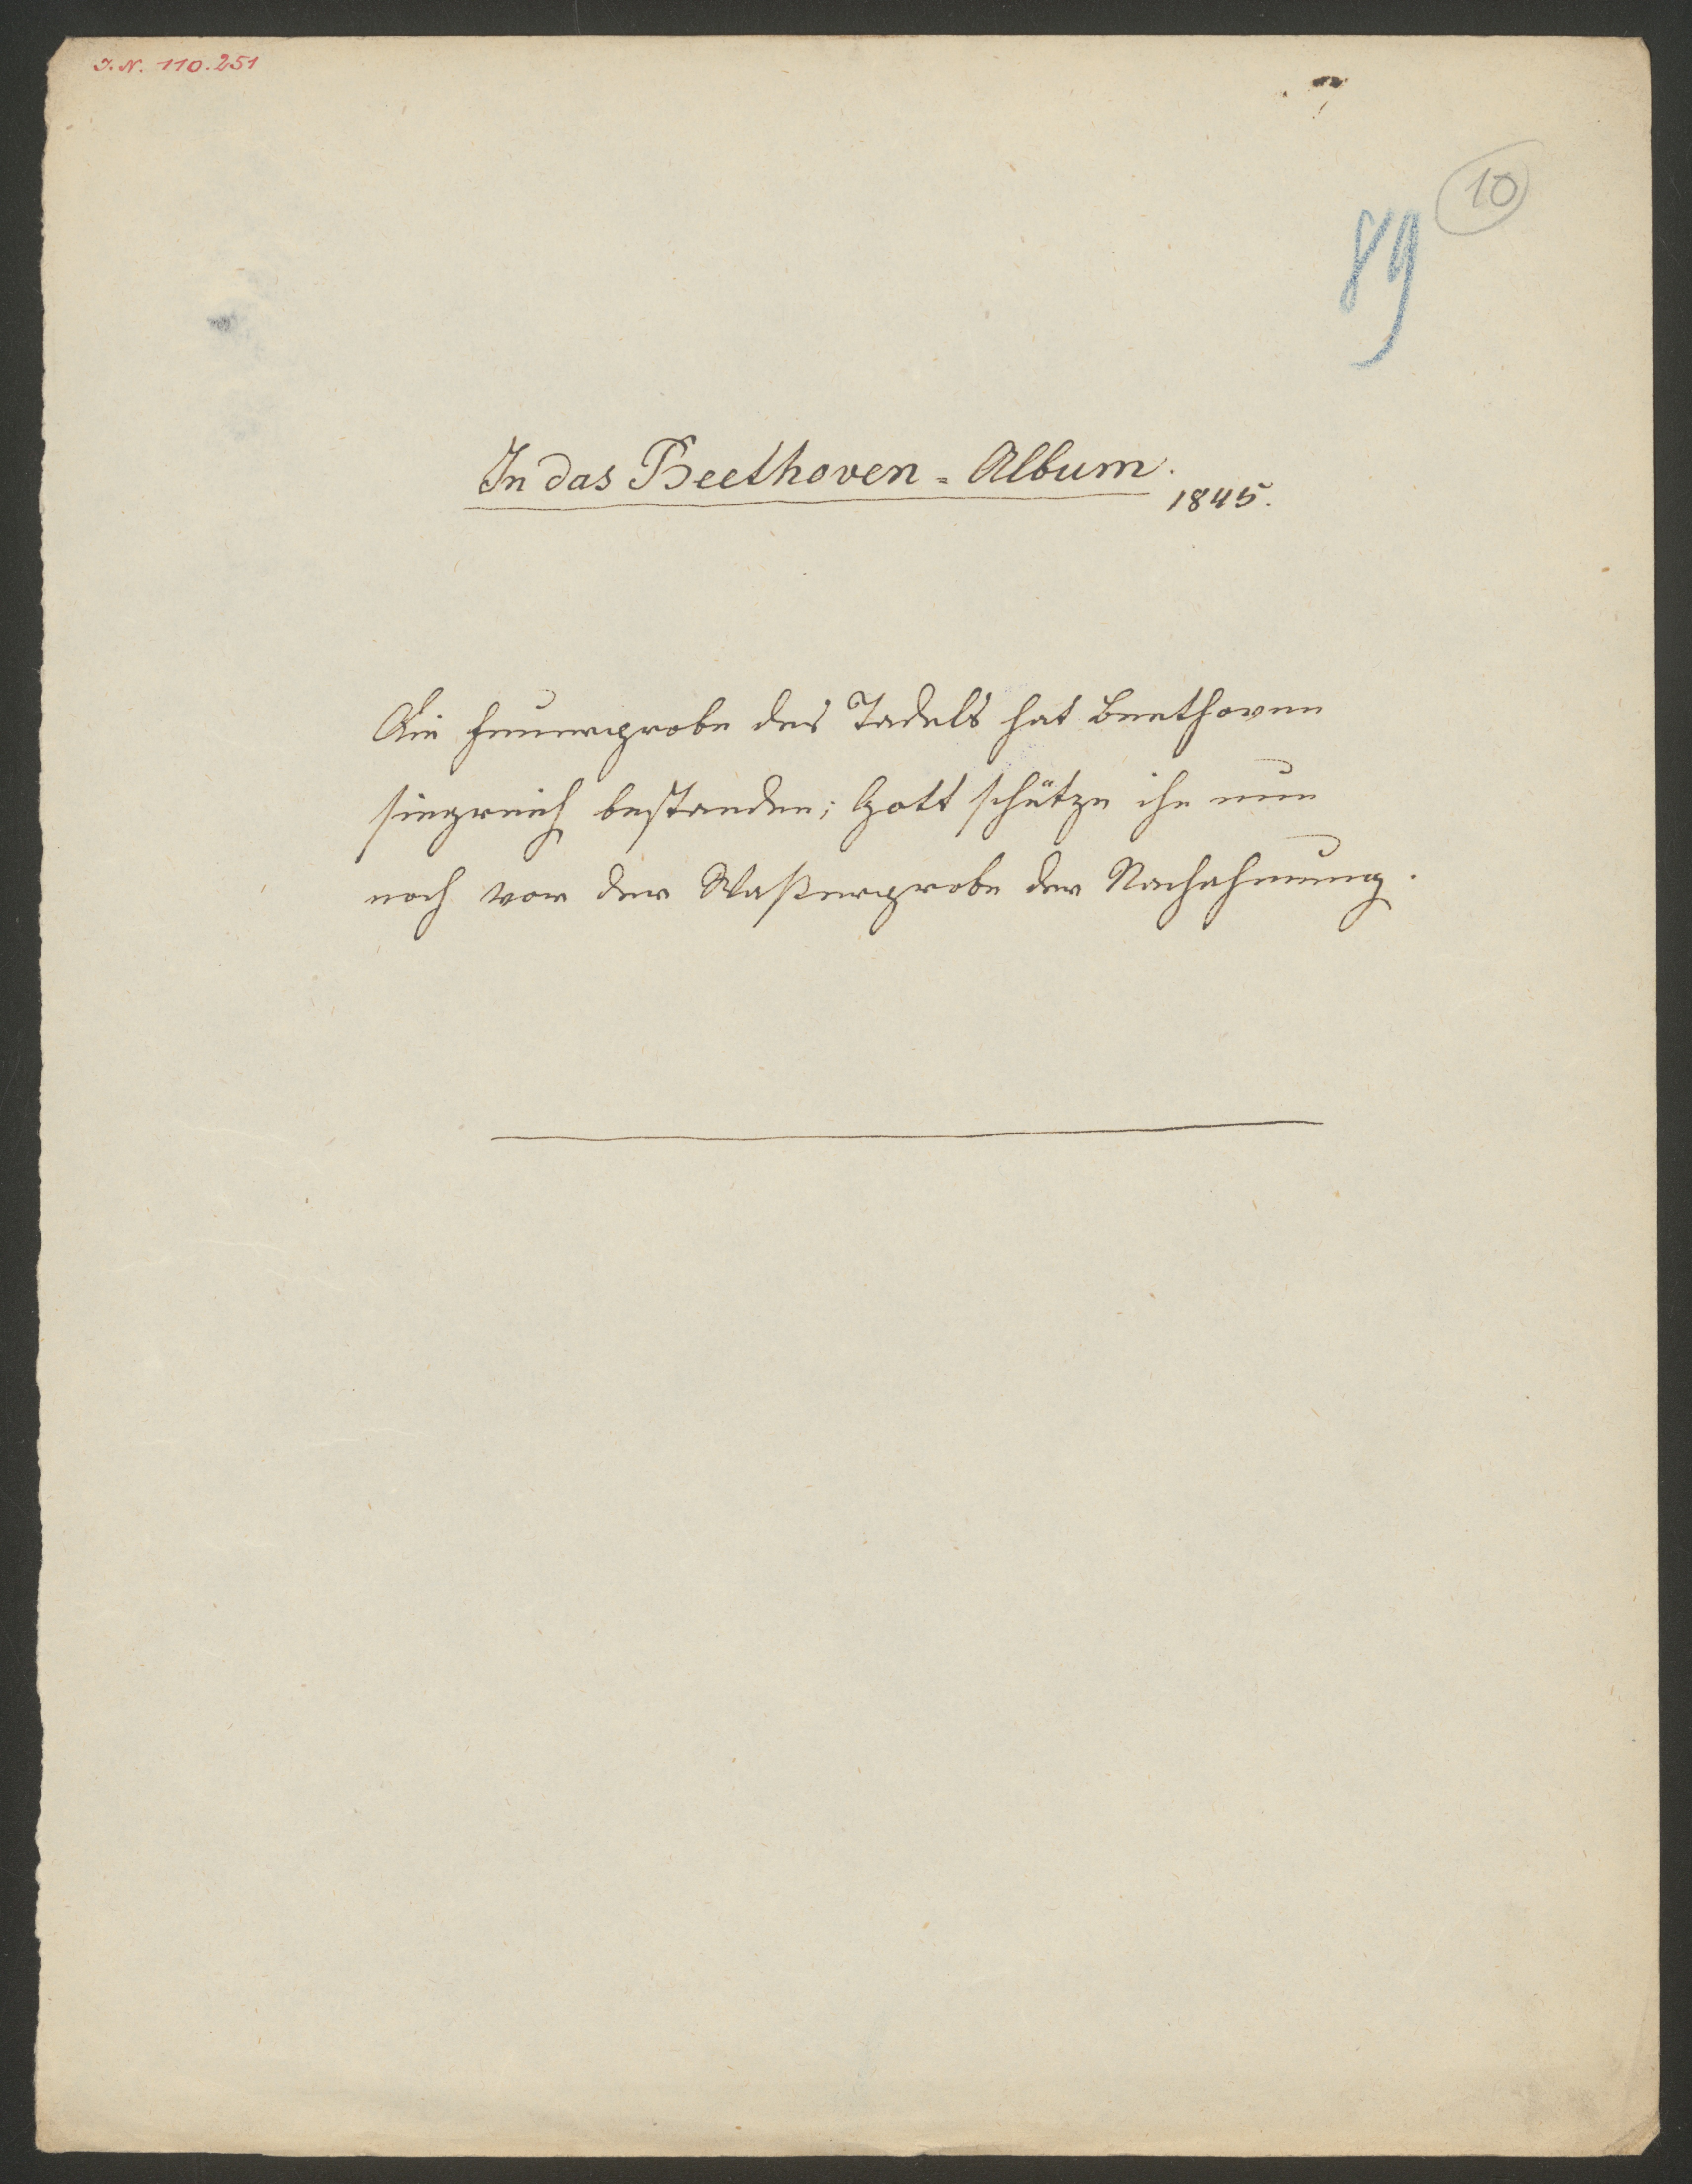 J. N. 110.251
10
89
In das Beethoven=Album.
1845.
Die Feuerprobe des Tadels hat Beethoven
siegreich bestanden; Gott schütze ihn nun
noch vor der Waßerprobe der Nachahmung.